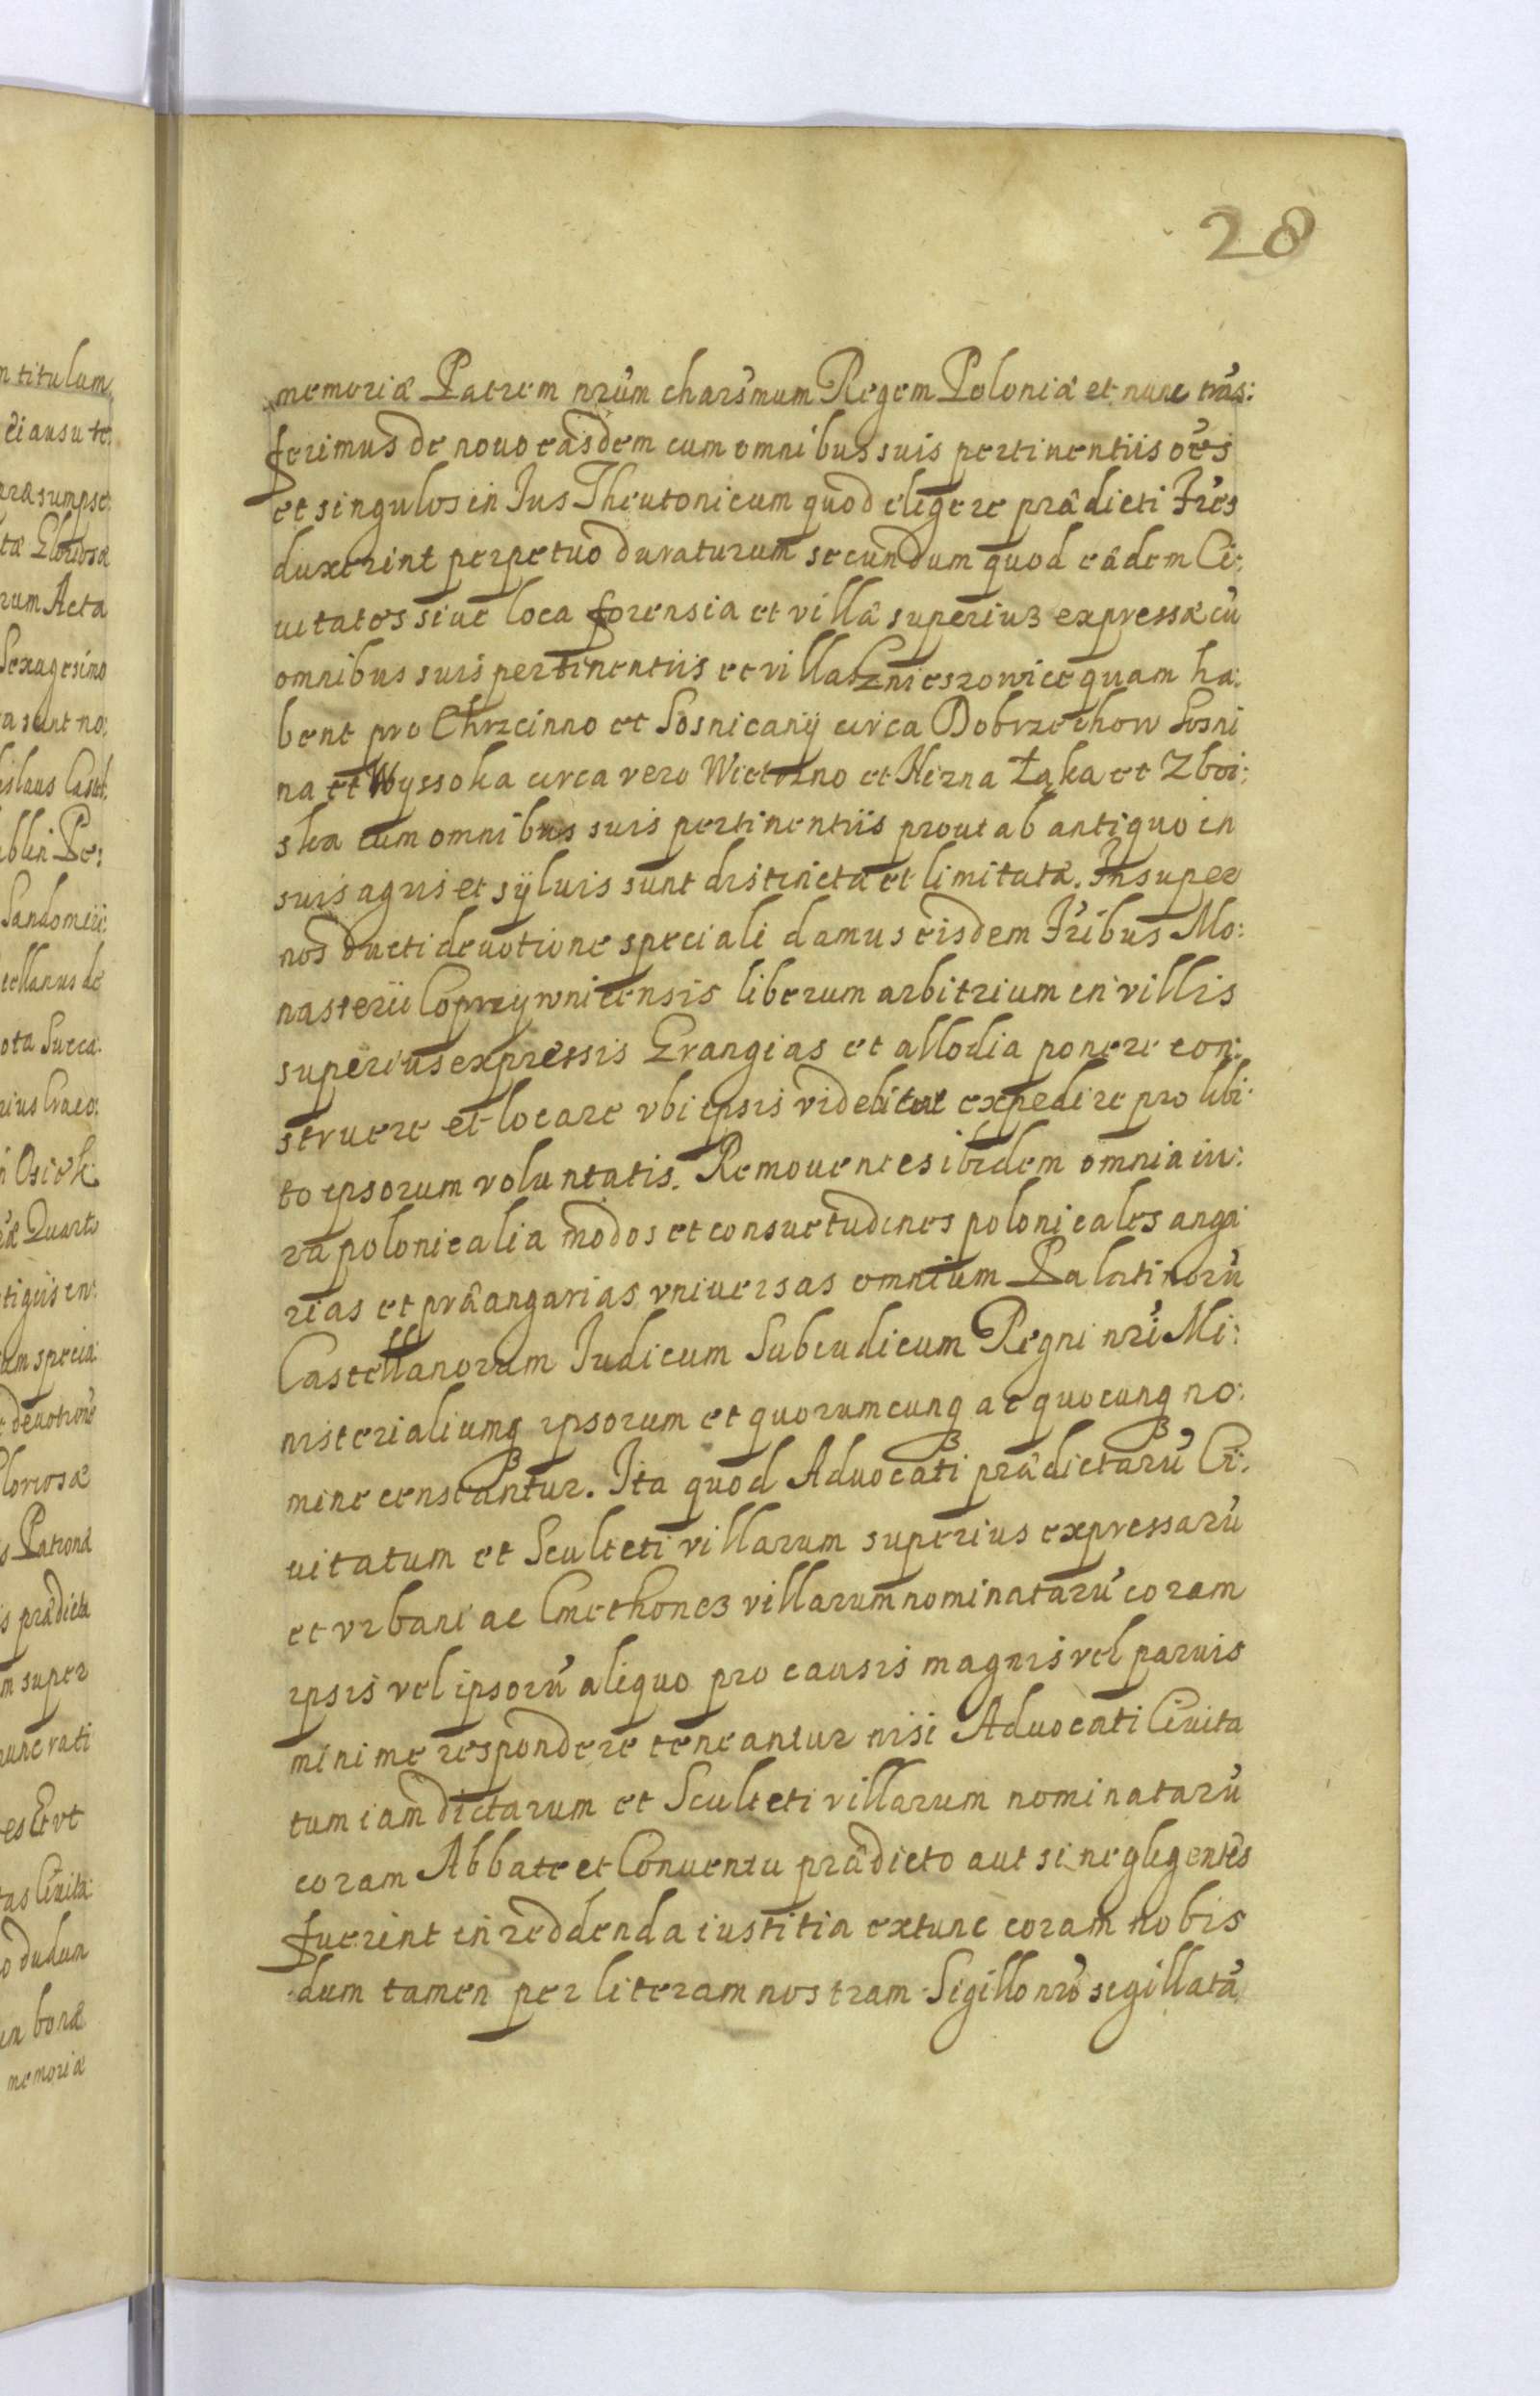 28
memoriæ Patrem nrũm chars̃mum Regem Poloniæ et nunc trãs:
ferimus de nouo easdem cum omnibus suis pertinentiis oẽs
et singulos in Ius Theutonicum quod eligere prædicti Fr̃es
duxerint perpetuo duraturum secundum quod eædem Ci:
uitates siue loca forensia et villæ superius expressæ cũ
omnibus suis pertinentiis et villa Gnieszowice quam ha:
bent pro Chrzcinno et Sosnicanÿ circa Dobrzechow Sosni
na et Wyssoka circa vero Wietrzno et Nizna Łąka et Zboi:
ska cum omnibus suis pertinentiis prout ab antiquo in
suis agris et sÿluis sunt distincta et limitata. Insuper
nos ducti deuotione speciali damus eisdem Fr̃ibus Mo:
nasterii Coprzywnicensis liberum arbitrium in villis
superius expressis Grangias et allodia ponere con:
struere et locare vbi ipsis videbitur expedire pro libi:
to ipsorum voluntatis. Remouentes ibidem omnia iu:
ra polonicalia modos et consuetudines polonicales anga
rias et præangarias vniuersas omnium Palatinorũ
Castellanorum Iudicum Subiudicum Regni nrĩ Mi:
nisterialiumq ipsorum et quorumcunq ac quocunq no:
mine censeantur. Ita quod Aduocati prædictarũ Ci:
uitatum et Sculteti villarum superius expressarũ
et vrbani ac Cmethones villarum nominatarũ coram
ipsis vel ipsorũ aliquo pro causis magnis vel paruis
minime respondere teneantur nisi Aduocati Ciuita
tum iam dictarum et Sculteti villarum nominatarũ
coram Abbate et Conuentu prædicto aut si neglegentes
fuerint in reddenda iustitia extunc coram nobis
dum tamen per literam nostram Sigillo nrõ sigillatã